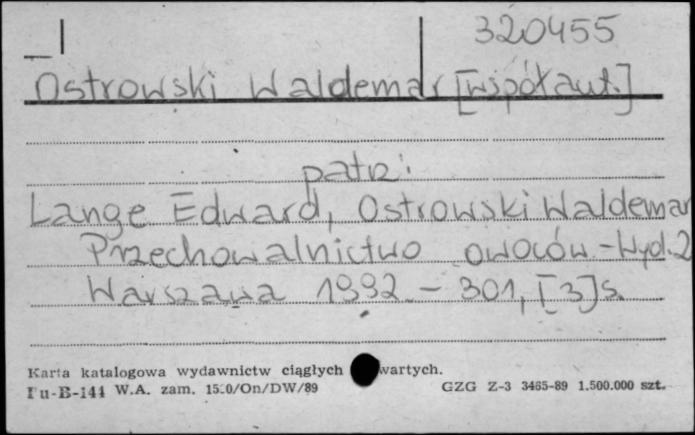 320455
Ostrowski Waldemar [współaut.]
patrz:
Lange Edward, Ostrowski Waldemar
Przechowalnictwo owoców - Wyd. 2
Warszawa 1992 - 301, [3] s.
Karta katalogowa wydawnictw ciągłych wartych.
Pu-B-144 W.A. zam. /On/DW/89 GZG Z-3 3465-89 1.500.000 szt.